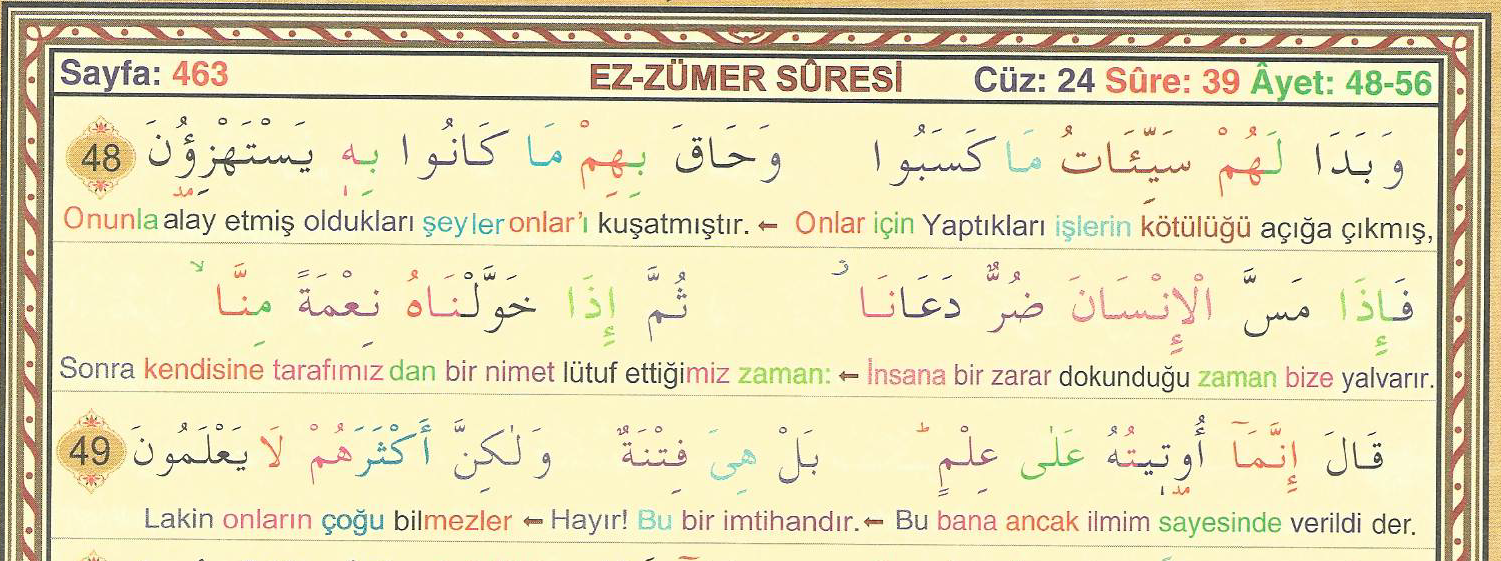 Sayfa: 463 EZ-ZÜMER SÛRESİ Cüz: 24 Sûre: 39 Âyet: 48-56
وَبَدَا لَهُمْ سَيِّئَاتُ مَا كَسَبُوا وَحَاقَ بِهِمْ مَا كَانُوا بِهِ يَسْتَهْزِؤُنَ 48
Onunla alay etmiş oldukları şeyler onlar'ı kuşatmıştır. ← Onlar için Yaptıkları işlerin kötülüğü açığa çıkmış,
فَإِذَا مَسَّ الْإِنْسَانَ ضُرٌّ دَعَانَا ثُمَّ إِذَا خَوَّلْنَاهُ نِعْمَةً مِنَّا
Sonra kendisine tarafımızdan bir nimet lütuf ettiğimiz zaman: ← İnsana bir zarar dokunduğu zaman bize yalvarır.
قَالَ إِنَّمَٓا أُوتِيتُهُ عَلٰى عِلْمٍ بَلْ هِيَ فِتْنَةٌ وَلٰكِنَّ أَكْثَرَهُمْ لَا يَعْلَمُونَ 49
Lakin onların çoğu bilmezler ← Hayır! Bu bir imtihandır. ← Bu bana ancak ilmim sayesinde verildi der.